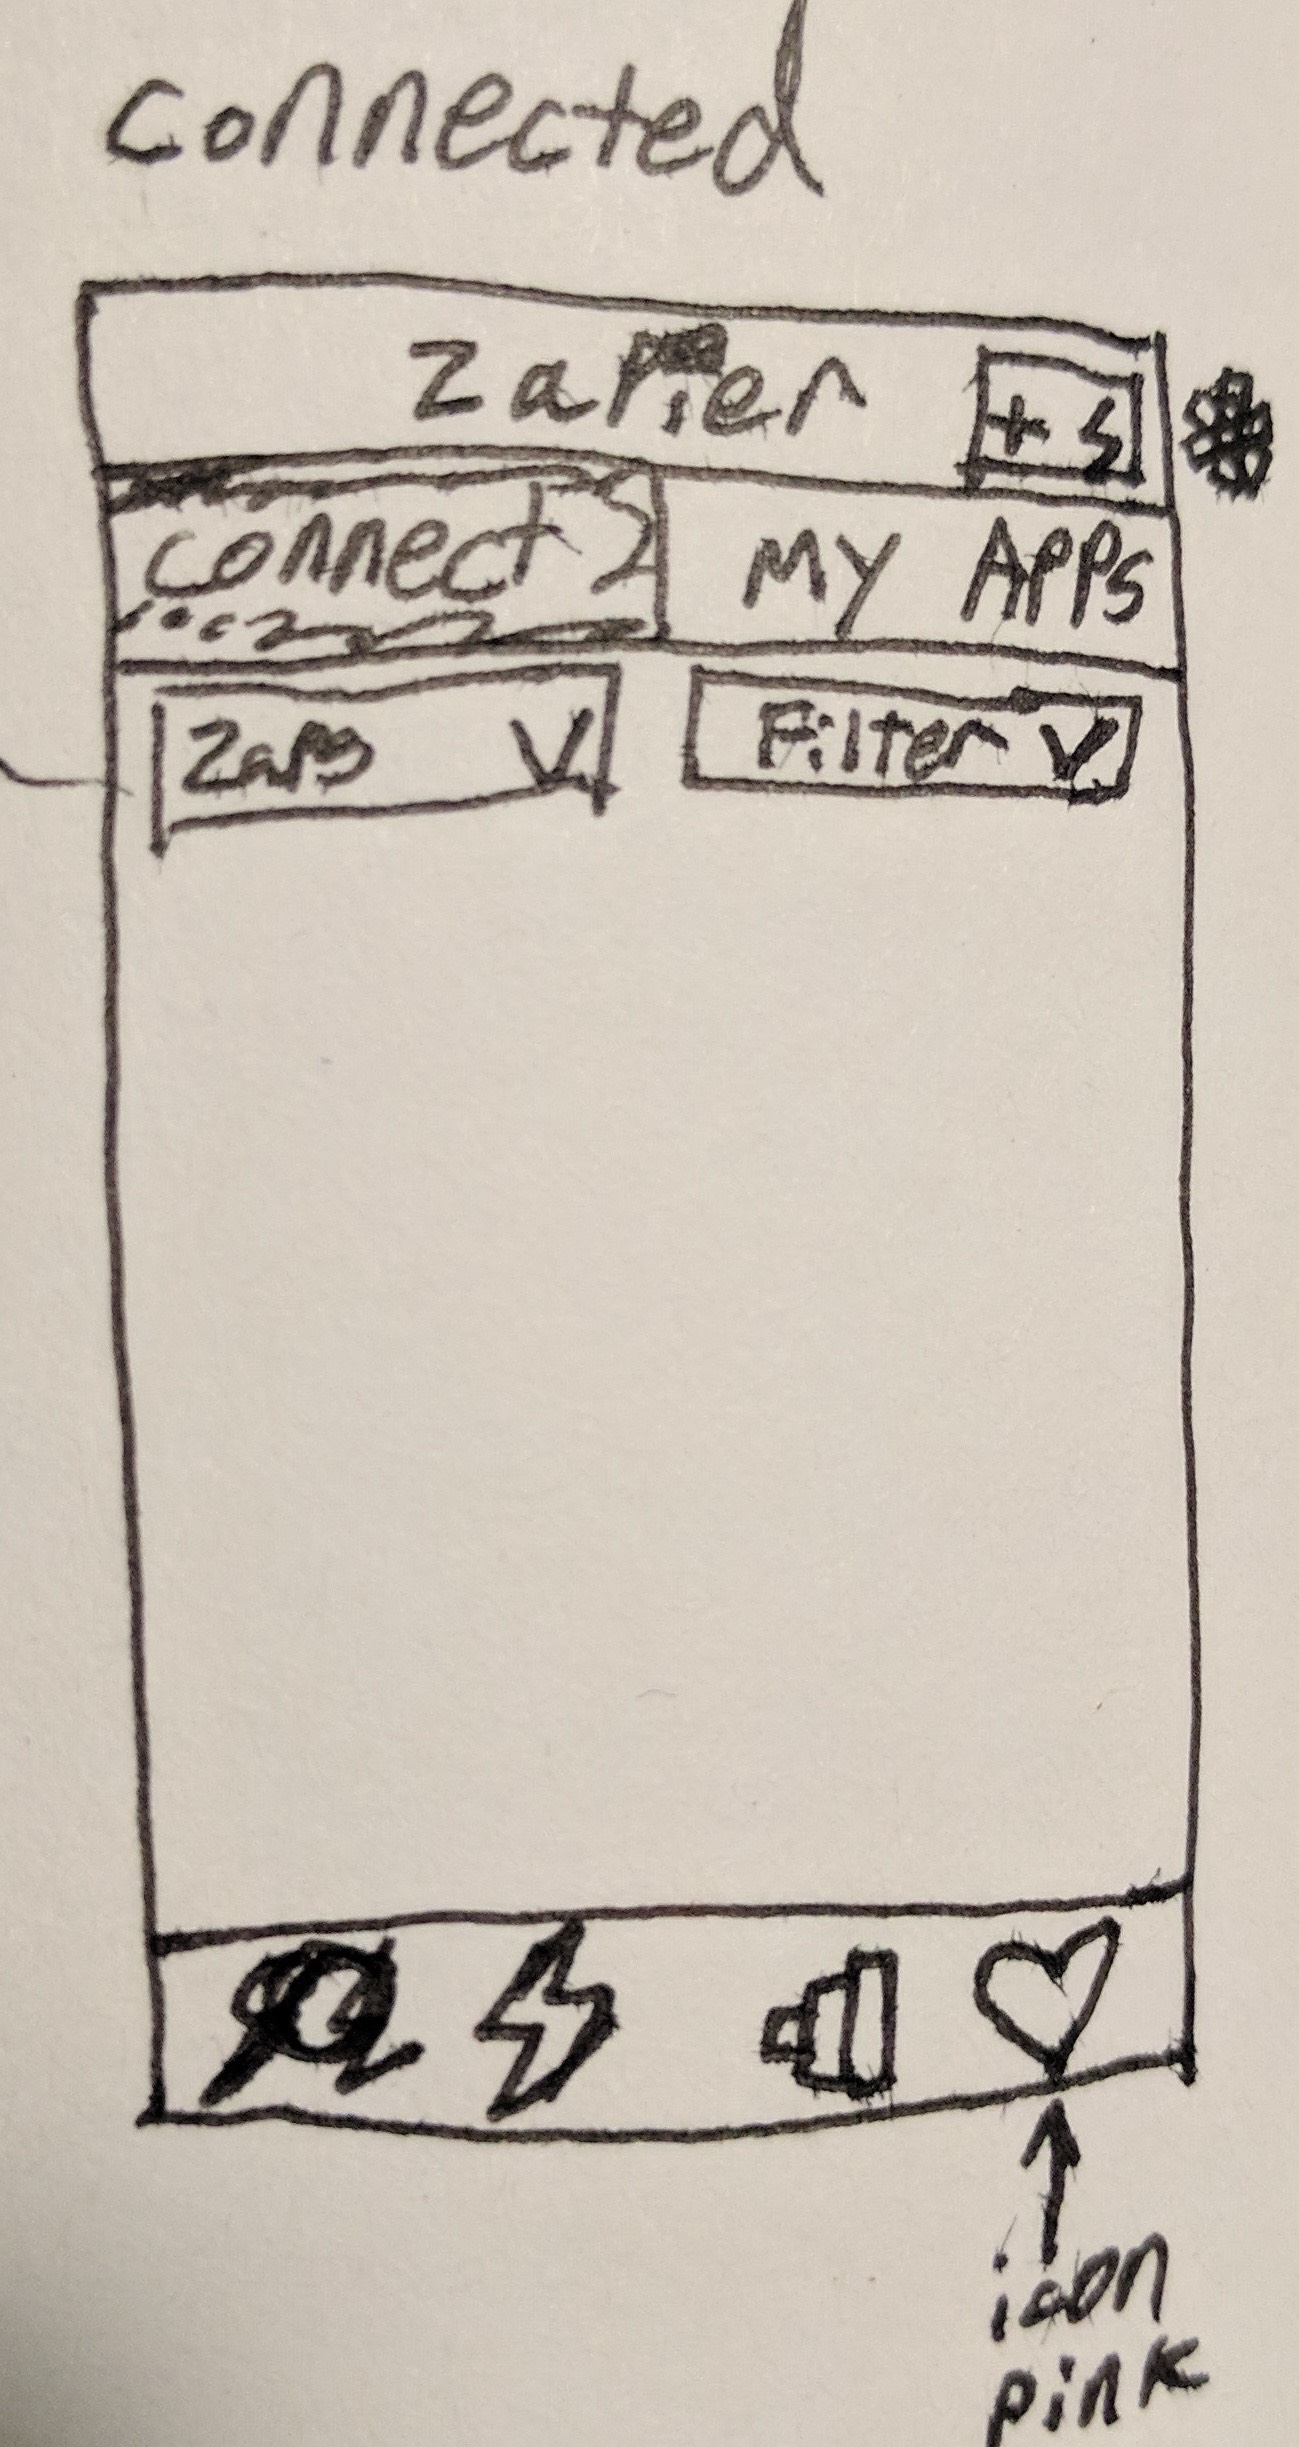 connected
Zapier
+
connect
My Apps
Zaps
Filter
icon
pink